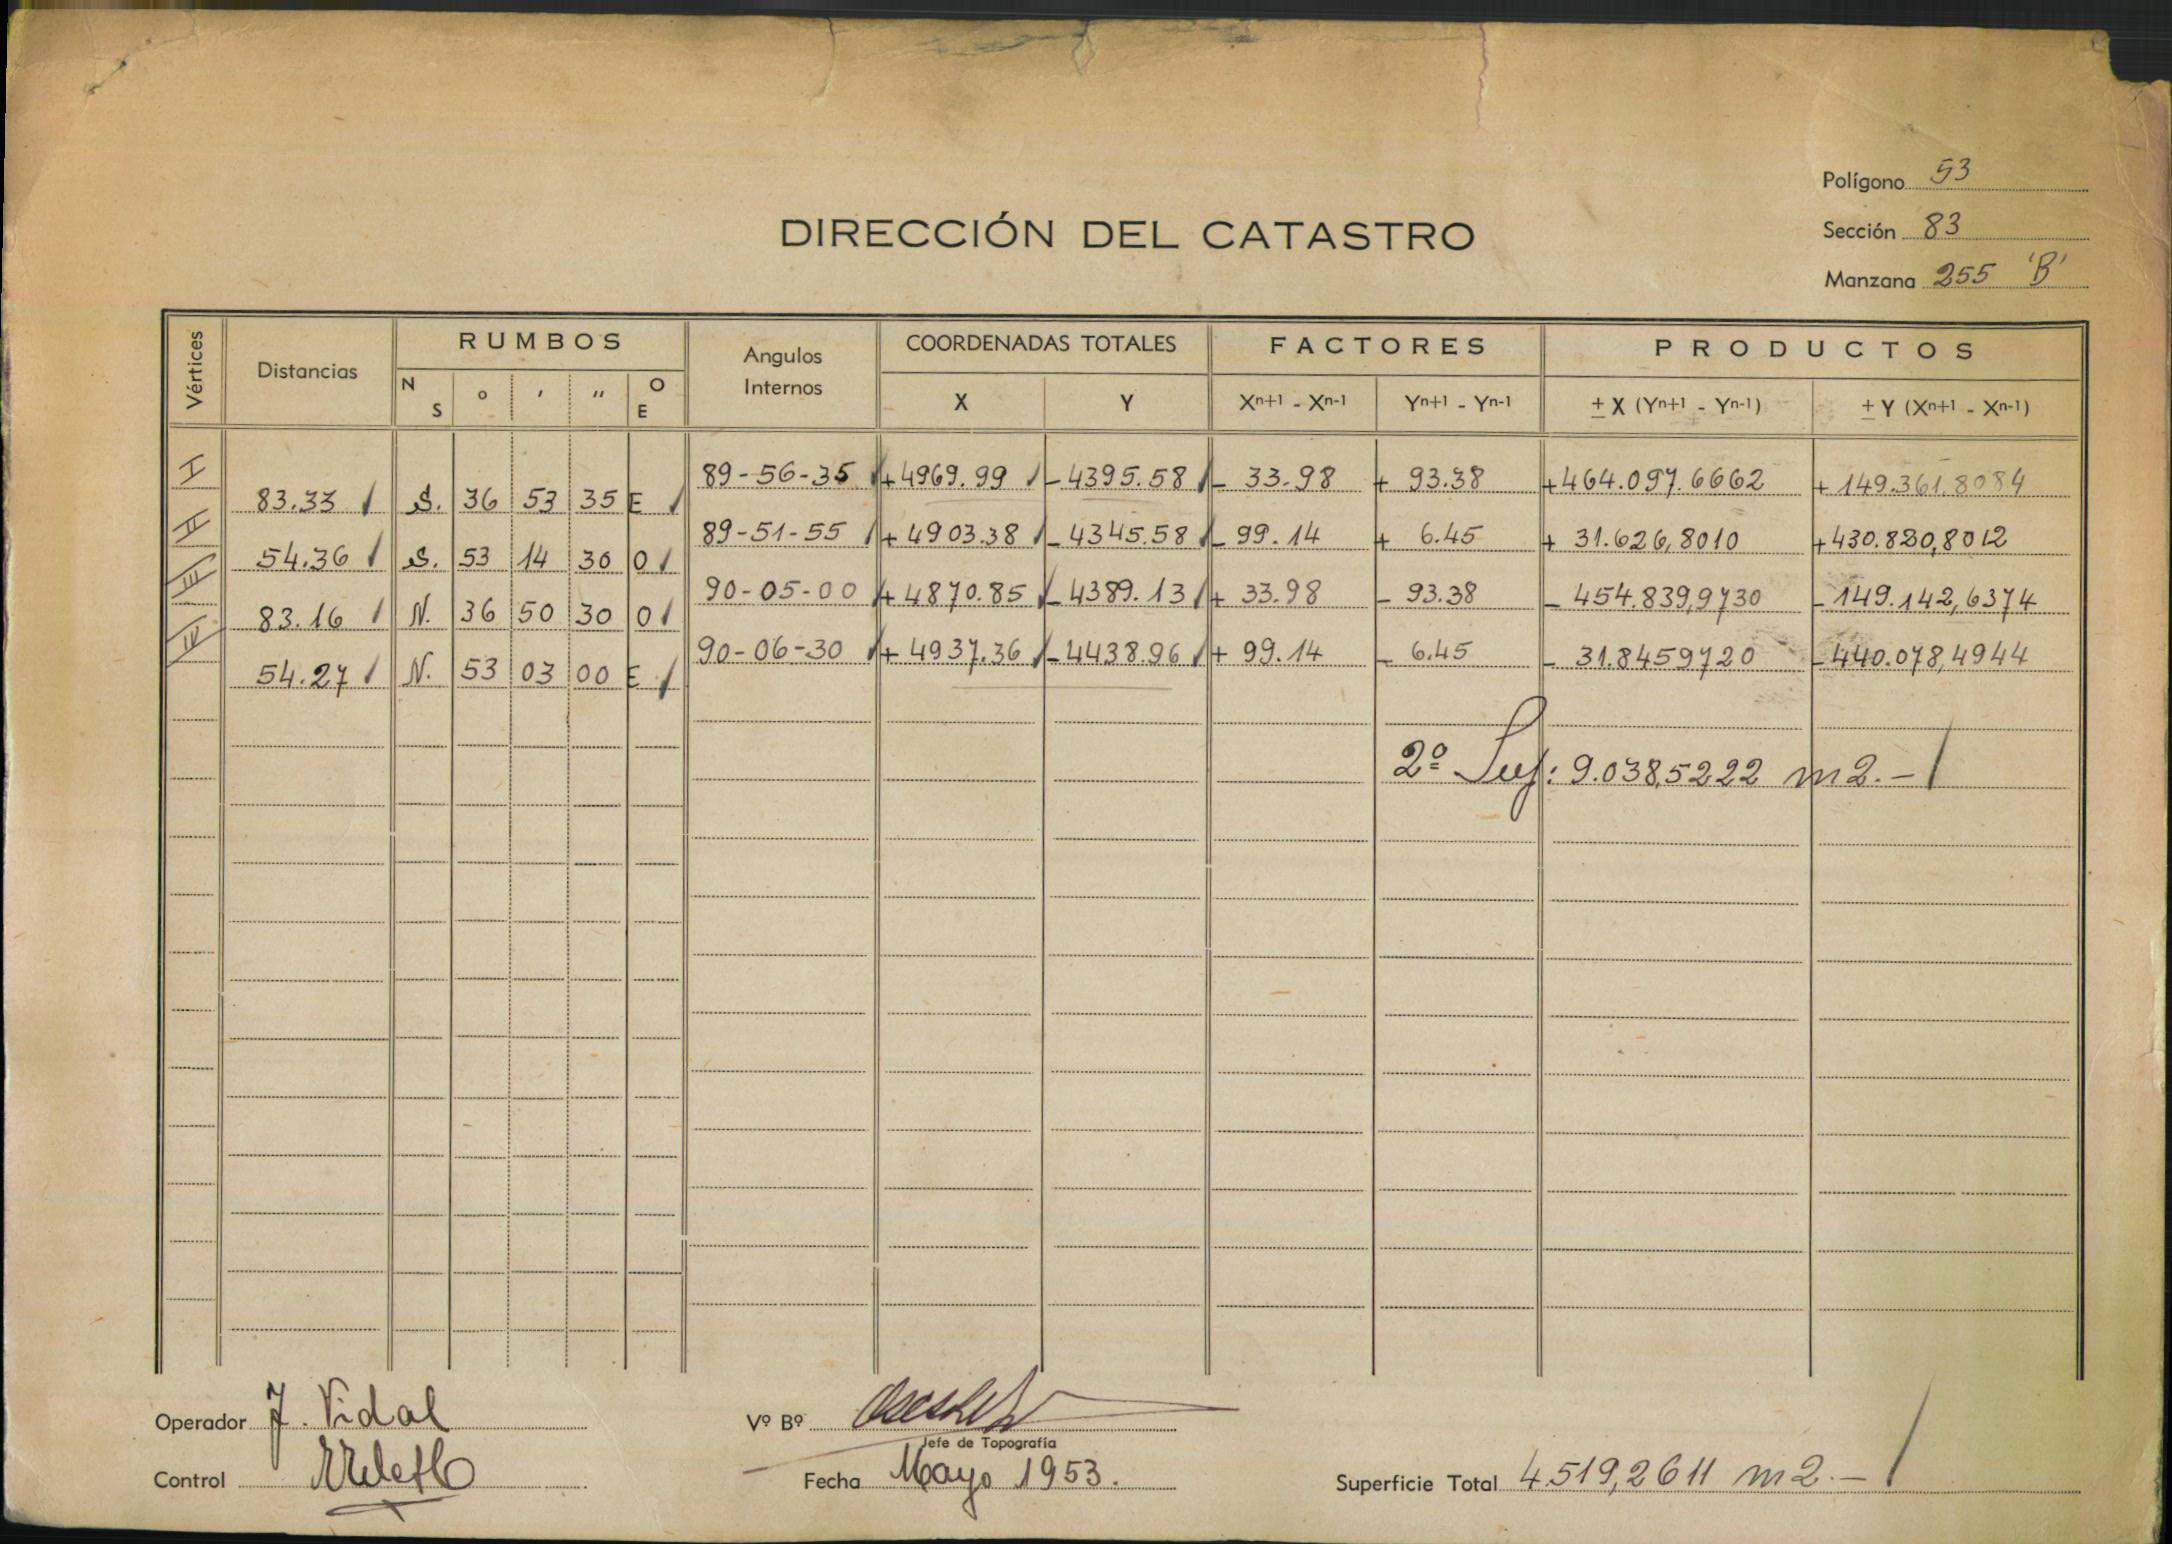 Polígono 53
DIRECCIÓN DEL CATASTRO
Sección 83
Manzana 255 'B'
Vértices Distancias RUMBOS Angulos Internos COORDENADAS TOTALES FACTORES PRODUCTOS
N S ° ' " O E X Y Xn+1 - Xn-1 Yn+1 - Yn-1 ± X (Yn+1 - Yn-1) ± Y (Xn+1 - Xn-1)
I 89-56-35 +4969.99 -4395.58 - 33.98 + 93.38 +464.097.6662 +149.361.8084
83.33 S. 36 53 35 E
II 89-51-55 +4903.38 -4345.58 - 99.14 + 6.45 + 31.626,8010 +430.820,8012
54.36 S. 53 14 30 O
III 90-05-00 +4870.85 -4389.13 + 33.98 - 93.38 - 454.839,9730 -149.142,6374
83.16 N. 36 50 30 O
IV 90-06-30 +4937.36 -4438.96 + 99.14 - 6.45 - 31.8459720 -440.078,4944
54.27 N. 53 03 00 E
2º Sup: 9.038,5222 m2.-
Operador J. Vidal Vº Bº
Jefe de Topografía
Control Fecha Mayo 1953. Superficie Total 4.519,2611 m2.-